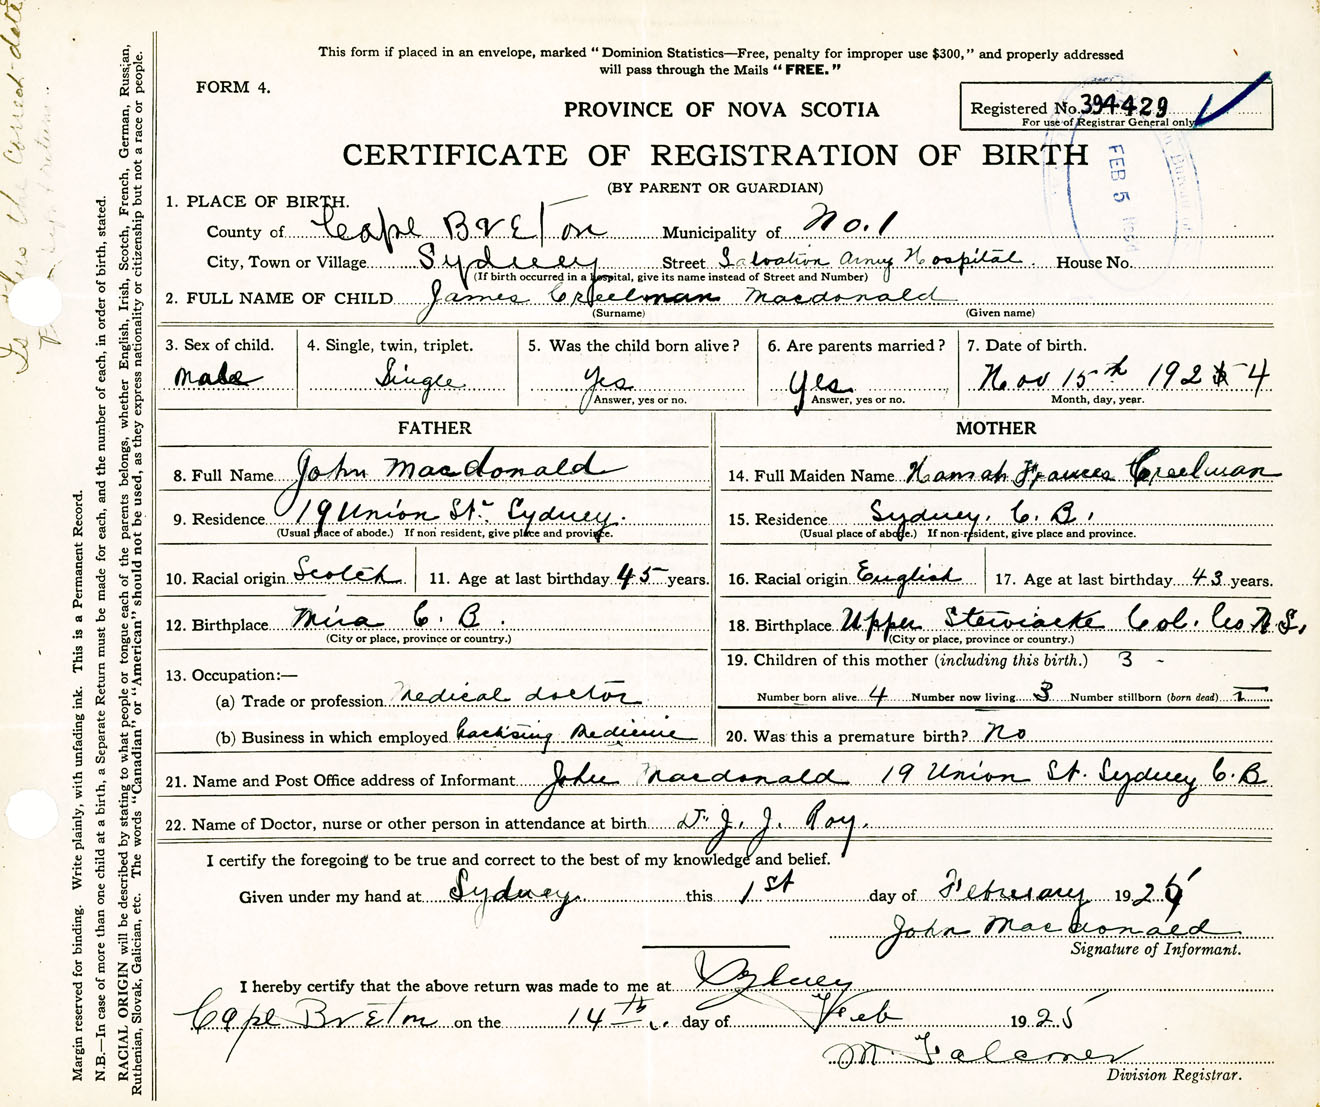 This form if placed in an envelope, marked "Dominion Statistics—Free, penalty for improper use $300," and properly addressed
will pass through the Mails "FREE."
FORM 4.
PROVINCE OF NOVA SCOTIA
Registered No. 394429
For use of Registrar General only
FEB 5
CERTIFICATE OF REGISTRATION OF BIRTH
(BY PARENT OR GUARDIAN)
1. PLACE OF BIRTH.
County of Cape Breton Municipality of No. 1
City, Town or Village Sydney Street Salvation Army Hospital. House No.
(If birth occurred in a hospital, give its name instead of Street and Number)
2. FULL NAME OF CHILD James Creelman Macdonald
(Surname) (Given name)
3. Sex of child. 4. Single, twin, triplet. 5. Was the child born alive? 6. Are parents married? 7. Date of birth.
Male Single Yes Yes Nov 15th 192 4
Answer, yes or no. Answer, yes or no. Month, day, year.
FATHER MOTHER
8. Full Name John Macdonald 14. Full Maiden Name Hannah Frances Creelman
9. Residence 19 Union St. Sydney. 15. Residence Sydney. C. B.
(Usual place of abode.) If non resident, give place and province. (Usual place of abode.) If non-resident, give place and province.
10. Racial origin Scotch 11. Age at last birthday 45 years. 16. Racial origin English 17. Age at last birthday 43 years.
12. Birthplace Mira C. B. 18. Birthplace Upper Stewiacke Col. Co. N.S.
(City or place, province or country.) (City or place, province or country.)
19. Children of this mother (including this birth.) 3 -
13. Occupation:—
(a) Trade or profession Medical doctor Number born alive 4 Number now living 3 Number stillborn (born dead) 1
(b) Business in which employed Practising Medicine 20. Was this a premature birth? No
21. Name and Post Office address of Informant John Macdonald 19 Union St. Sydney C. B
22. Name of Doctor, nurse or other person in attendance at birth Dr. J. J. Roy.
I certify the foregoing to be true and correct to the best of my knowledge and belief.
Given under my hand at Sydney. this 1st day of February 1925
John Macdonald
Signature of Informant.
I hereby certify that the above return was made to me at Sydney
Cape Breton on the 14th day of Feb 1925
M. Falconer
Division Registrar.
Margin reserved for binding. Write plainly, with unfading ink. This is a Permanent Record.
N.B.—In case of more than one child at a birth, a Separate Return must be made for each, and the number of each, in order of birth, stated.
RACIAL ORIGIN will be described by stating to what people or tongue each of the parents belongs, whether English, Irish, Scotch, French, German, Russian,
Ruthenian, Slovak, Galician, etc. The words "Canadian" or "American" should not be used, as they express nationality or citizenship but not a race or people.
Is this the correct date